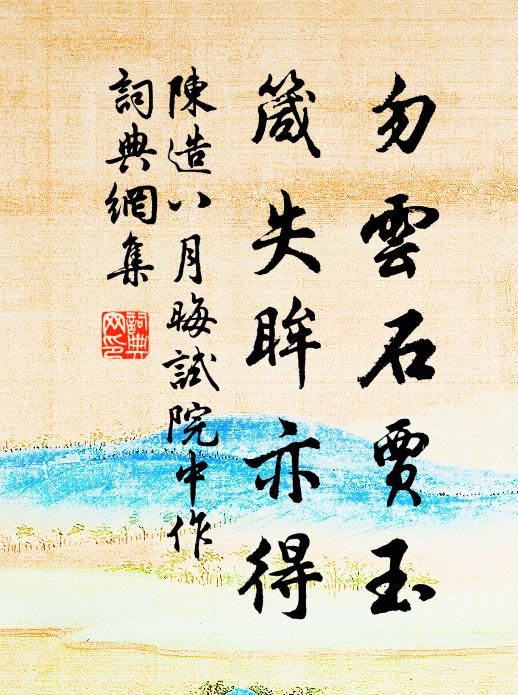 勿雲石賈玉
箴失眸亦得
陳造八月晦試院中作
詞典網集
詞典
网印